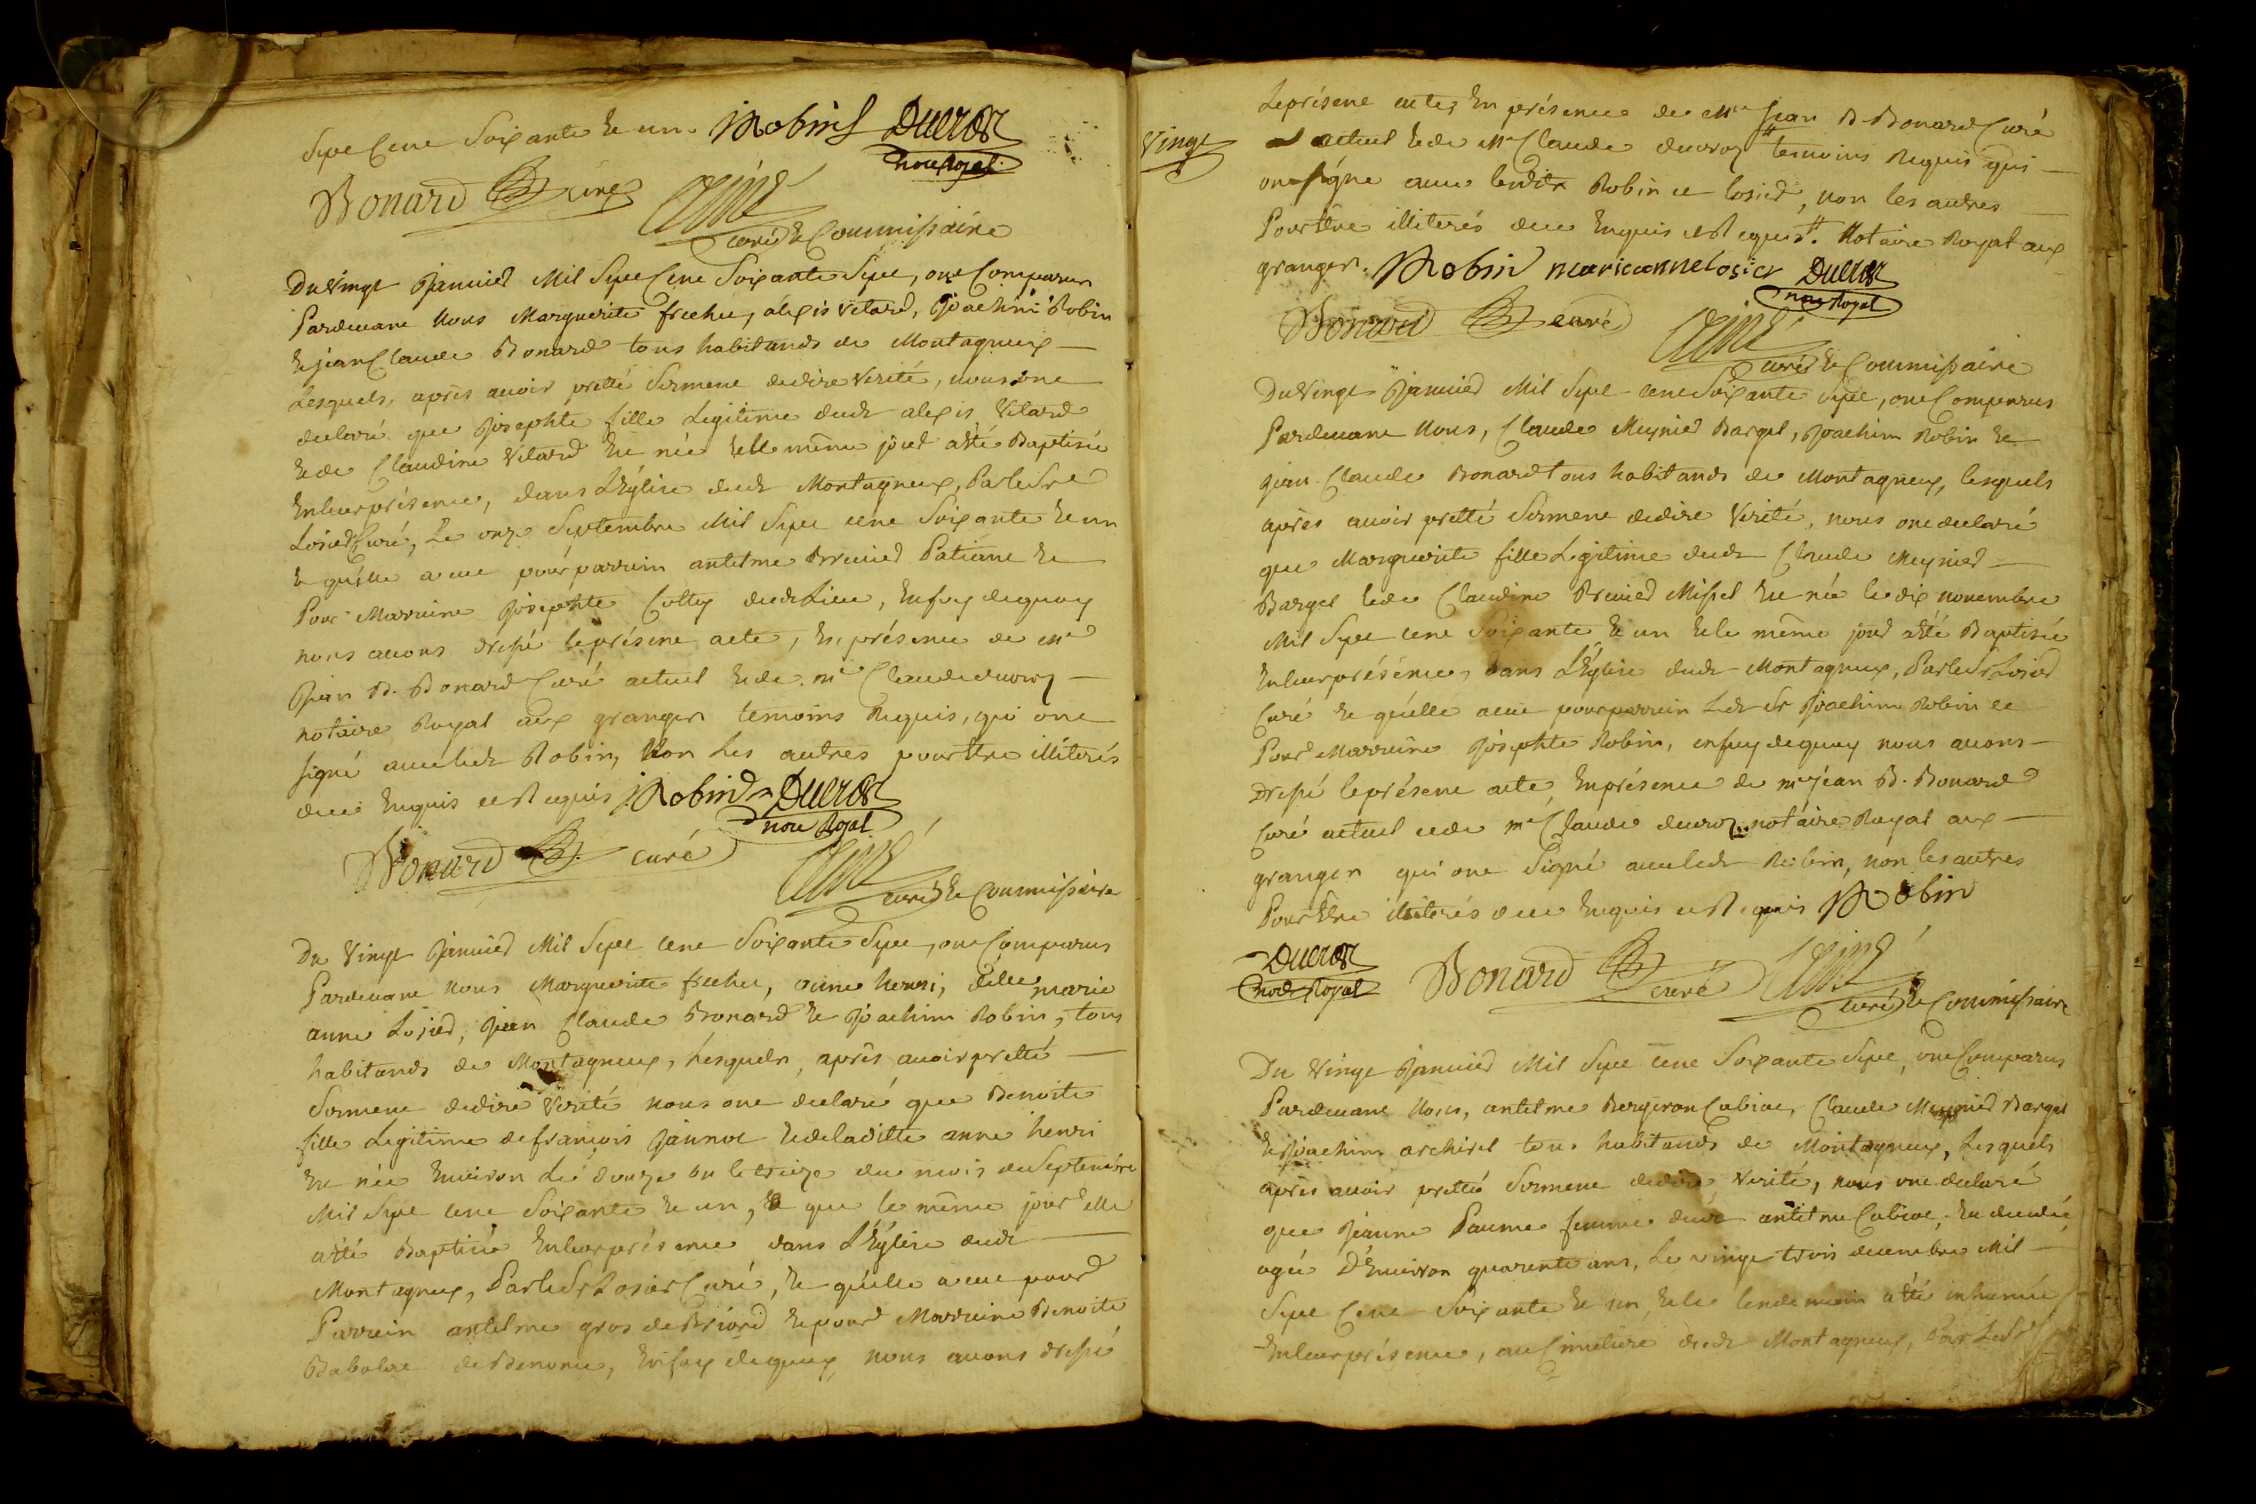 Sept Cent Soixante et un. Robin Ducroz
notre Royal
Bonard curé
curé et Commissaire
Du Vingt Janvier Mil Sept Cent Soixante Sept, ont Comparus
Pardevant Nous Marguerite frechu, aléxis Vétard, Joachim Robin
et jean Claude Bonard tous habitands de Montagneux
Lesquels, après avoir pretté Serment de dire Verité, nous ont
declaré que Josephte fille Legitime dudt alexis Vétard
et de Claudine Vétard Est née et le même jour a été Baptisée
En leur présence, dans L'Eglise dudt Montagneux, Par le Sr
Losier Curé, Le onze Septembre Mil Sept cent Soixante et un
et qu'elle a eue pour parrein antelme Brunier Patiant et
Pour Marraine Josephte Cottey dudt Lieu, En foy de quoy
nous avons dressé le présent acte, En présence de me
Jean B. Bonard Curé actuel et de me Claude ducroz
notaire Royal aux granges temoins Requis, qui ont
signé avec ledt Robin, Non Les autres pour Etre illiterés
de ce Enquis et Requis Robin Ducroz
notre Royal
Bonard curé
curé et Commissaire
Du Vingt Janvier Mil Sept cent Soixante Sept, ont Comparus
Pardevant nous Marguerite frechu, anne henri, delle marie
anne Losier, Jean Claude Bonard et Joachim Robin, tous
habitands de Montagneux, Lesquels, après avoir pretté
Serment de dire Verité nous ont declaré que Benoite
fille Legitime de françois Jannot et de laditte anne henri
Est née Environ Le douze ou le treize du mois de Septembre
Mil Sept cent Soixante et un, et que le même jour elle
a été Baptisée En leur présence dans L'Eglise dudt
Montagneux, Par le Sr Losier Curé, et qu'elle a eue pour
Parrein antelme gros de Briord et pour Marraine Benoite
Babolat de Benonce, En foy de quoy, nous avons dressé
Vingt
Le présent acte, En présence de Me Jean B. Bonard Curé
actuel et de Me Claude ducroz # temoins Requis qui
ont signé avec lesdts Robin et Losier, Non les autres
Pour Etre illiterés de ce Enquis et Requis #. Notaire Royal aux
granges. Robin marieannelosier Ducroz
notre Royal
Bonard curé
curé et Commissaire
Du Vingt Janvier Mil Sept cent Soixante Sept, ont Comparus
Pardevant Nous, Claude Meynier Barget, Joachim Robin et
jean Claude Bonard tous habitands de Montagneux, lesquels
après avoir pretté Serment de dire Verité, nous ont declaré
que Marguerite fille Legitime dudt Claude Meynier
Barget et de Claudine Brunier Missel Est née le dix novembre
Mil Sept cent Soixante et un et le même jour a été Baptisée
En leur présence, dans L'Eglise dudt Montagneux, Par le Sr Losier
Curé et qu'elle a eue pour parrein Ledt Sr Joachim Robin et
Pour Marraine Josephte Robin, en foy de quoy nous avons
Dressé le présent acte En présence de me jean B. Bonard
Curé actuel et de me Claude ducroz notaire Royal aux
granges qui ont Signé avec ledt Robin, non les autres
Pour Etre illiterés de ce Enquis et Requis Robin
Ducroz
notre Royal
Bonard curé
curé et Commissaire
Du Vingt Janvier Mil Sept cent Soixante Sept, ont Comparus
Pardevant Nous, antelme Bergeron Cabiac, Claude Meynier Barget
et Joachim archirel tous habitands de Montagneux, Lesquels
après avoir pretté Serment de dire Verité, nous ont declaré
que Jeanne Paume femme dudt antelme Cabiac, Est decedée
agée D'Environ quarente ans, Le vingt trois decembre Mil
Sept Cent Soixante et un, et le lendemain a été inhumée
En leur présence, au Cimetiere dudt Montagneux, Par Le Sr